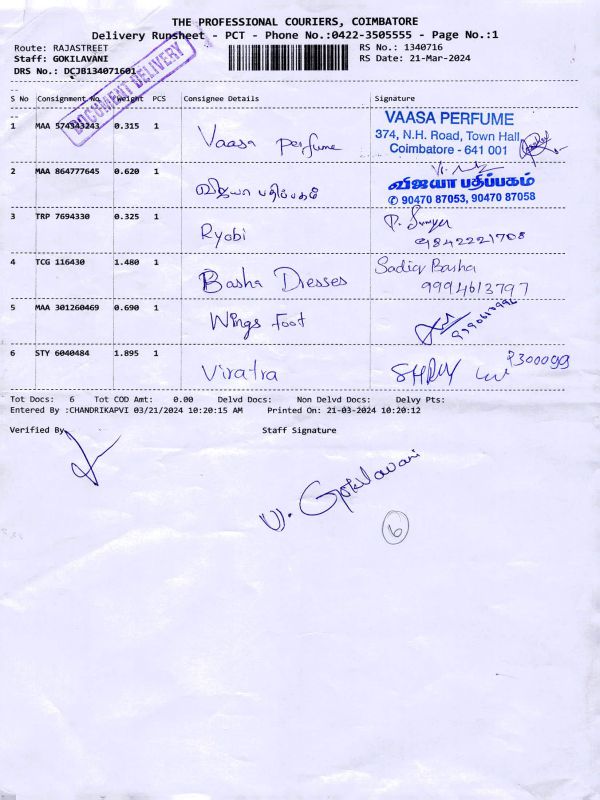 THE PROFESSIONAL COURIERS, COIMBATORE
Delivery Runsheet - PCT - Phone No.:0422-3505555 - Page No.:1
Route: RAJASTREET
RS No.: 1340716
Staff: GOKILAVANI
RS Date: 21-Mar-2024
DRS No.: DCJB134071601
DOCUMENT DELIVERY
S No Consignment No Weight PCS Consignee Details Signature
VAASA PERFUME
1 MAA 574343243 0.315 1 Vaasa Perfume
374, N.H. Road, Town Hall,
Coimbatore - 641 001
2 MAA 864777645 0.620 1 விஜயா பதிப்பகம்
விஜயா பதிப்பகம்
✆ 90470 87053, 90470 87058
3 TRP 7694330 0.325 1 Ryobi
9842221708
4 TCG 116430 1.480 1 Basha Dresses Sadiq Basha
9994613797
5 MAA 301260469 0.690 1 Wings Foot
6 STY 6040484 1.895 1 Viratra
Tot Docs: 6 Tot COD Amt: 0.00 Delvd Docs: Non Delvd Docs: Delvy Pts:
Entered By :CHANDRIKAPVI 03/21/2024 10:20:15 AM Printed On: 21-03-2024 10:20:12
Verified By Staff Signature
V. Gokilavani
6